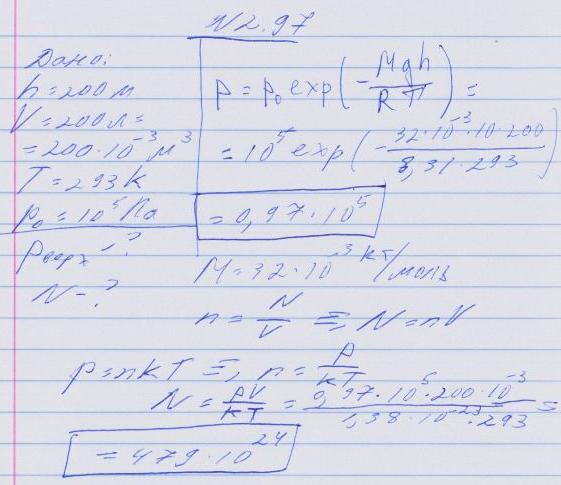 N2.97
Дано:
h=200м
V=200л=
=200·10⁻³ м³
T=293k
p₀=10⁵ Па
pверх-?
N-?
p = p₀ exp(-Mgh/RT) =
= 10⁵ exp(-32·10⁻³·10·200/8,31·293)
= 0,97·10⁵
M=32·10⁻³ кг/моль
n = N/V ⇒ N=nV
p=nkT ⇒ n= p/kT
N = pV/kT = 0,97·10⁵·200·10⁻³/1,38·10⁻²³·293 =
= 479·10²⁴